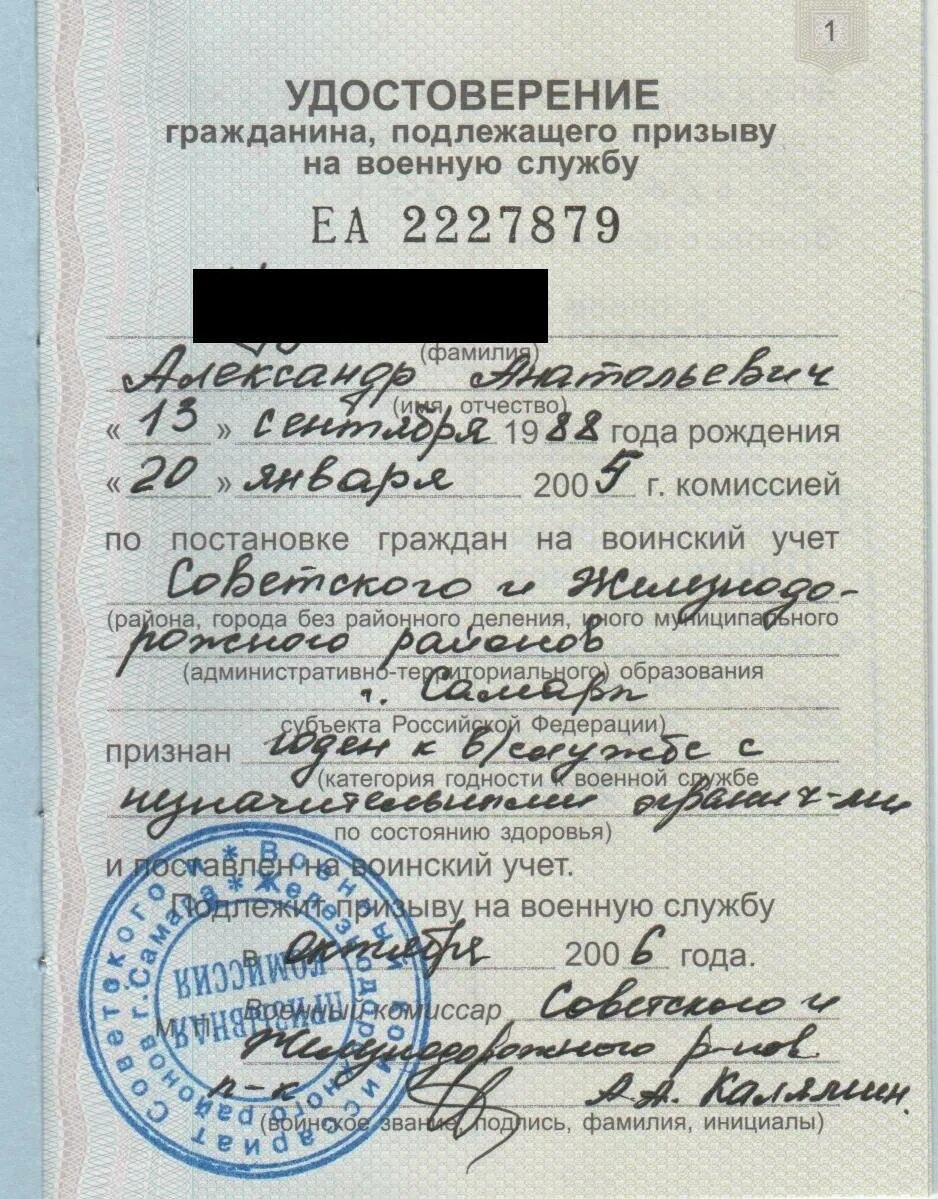 1
УДОСТОВЕРЕНИЕ
гражданина, подлежащего призыву
на военную службу
ЕА 2227879
(фамилия)
Александр Анатольевич
(имя, отчество)
« 13 » сентября 1988 года рождения
« 20 » января 2005 г. комиссией
по постановке граждан на воинский учет
Советского и Железнодо-
(района, города без районного деления, иного муниципального
рожного районов
(административно-территориального) образования
г. Самары
субъекта Российской Федерации)
признан годен к в/службе с
(категория годности к военной службе
незначительными огранич-ми
по состоянию здоровья)
и поставлен на воинский учет.
Подлежит призыву на военную службу
в октябре 2006 года.
Военный комиссар Советского и
М.П.
Железнодорожного р-нов
п-к А.А. Калямин.
(воинское звание, подпись, фамилия, инициалы)
* Военный комиссариат Советского и
* Железнодорожного районов г.Самара
ПРИЗЫВНАЯ
КОМИССИЯ